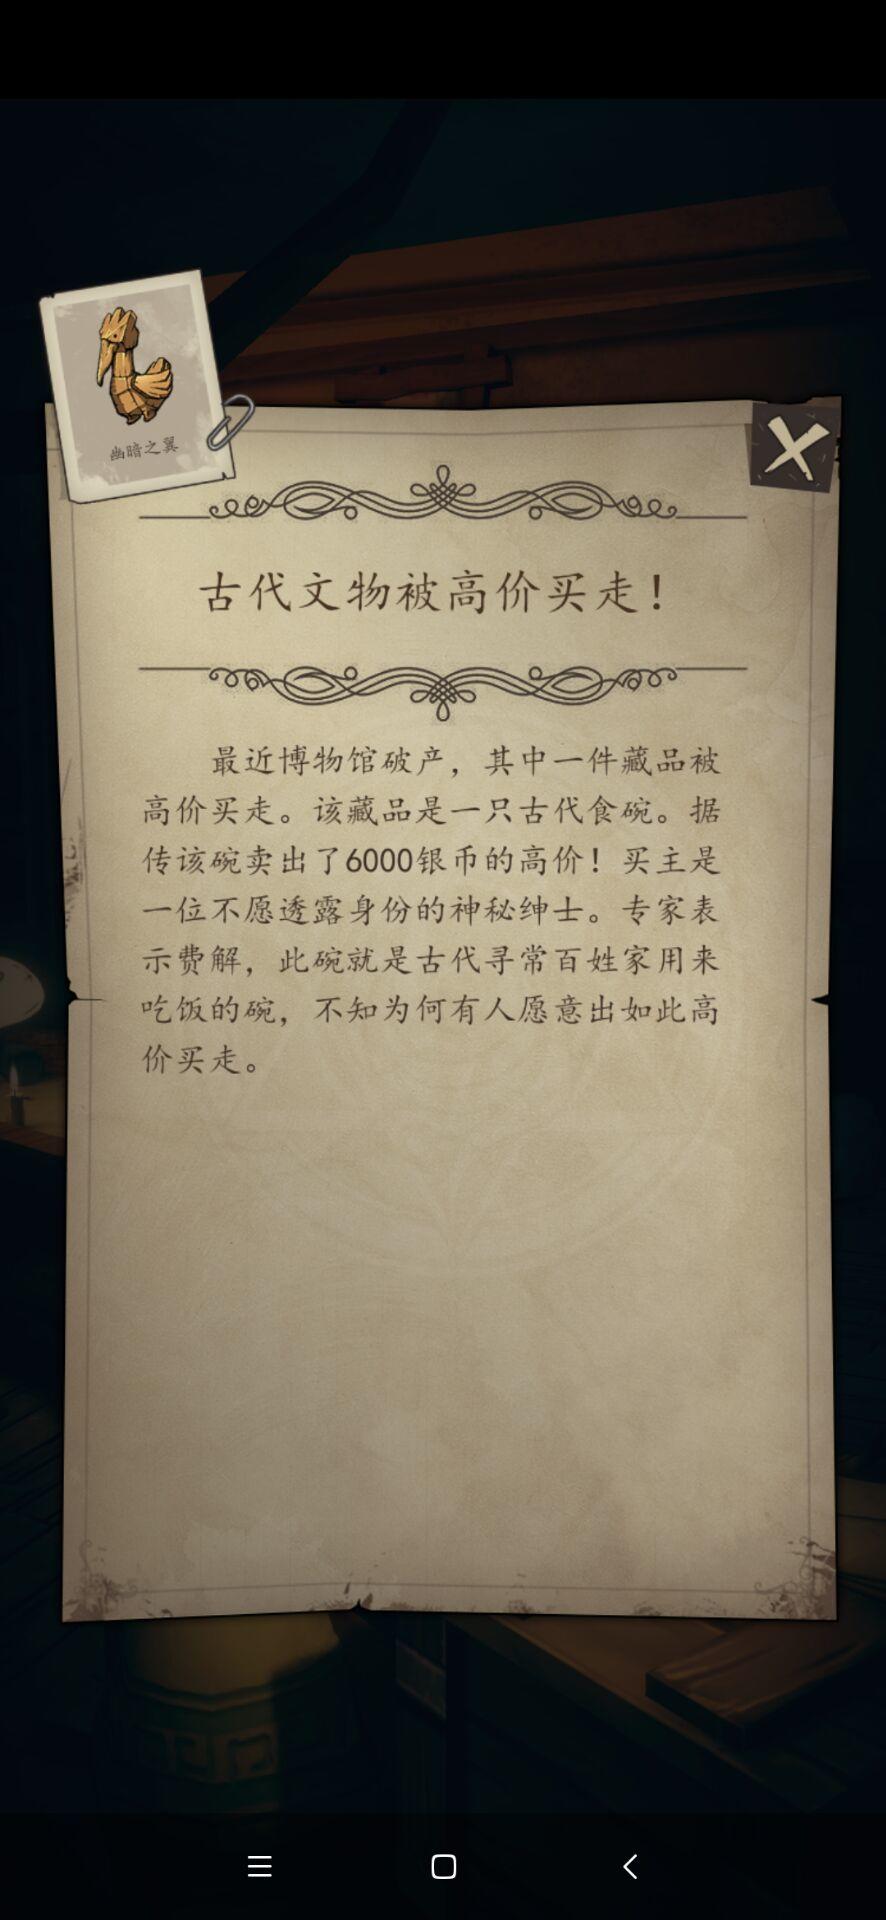 幽暗之翼
古代文物被高价买走！
最近博物馆破产，其中一件藏品被
高价买走。该藏品是一只古代食碗。据
传该碗卖出了6000银币的高价！买主是
一位不愿透露身份的神秘绅士。专家表
示费解，此碗就是古代寻常百姓家用来
吃饭的碗，不知为何有人愿意出如此高
价买走。